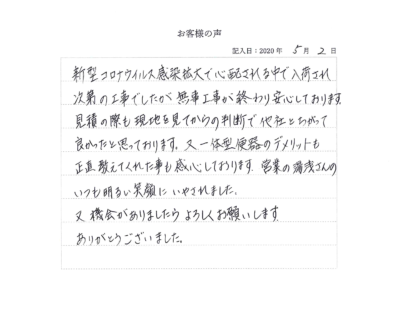 お客様の声
記入日：2020 年 5 月 2 日
新型コロナウイルス感染拡大で心配される中で入荷され
次第の工事でしたが無事工事が終わり安心しております
見積の際も現地を見てからの判断で他社とちがって
良かったと思っております。又一体型便器のデメリットも
正直教えてくれた事も感心しております。営業の湯浅さんの
いつも明るい笑顔にいやされました。
又機会がありましたらよろしくお願いします
ありがとうございました。